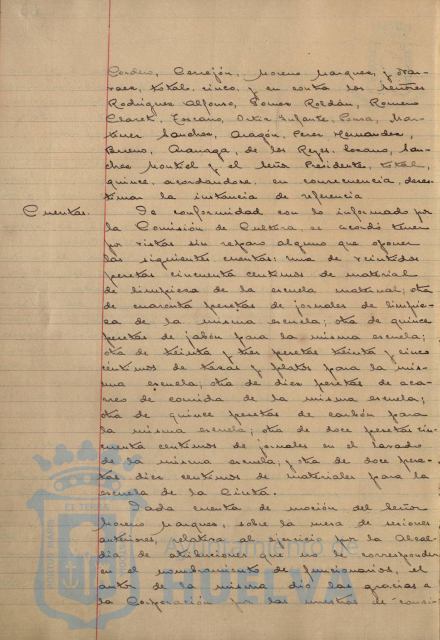 Cordero, Cerrejón, Moreno Marquez, y Nar-
vaez, total, cinco, y en contra los Señores
Rodriguez Alfonso, Gomez Roldán, Romero
Claret, Toscano, Ortiz Infante, Ponce, Mar-
tinez Sanchez, Aragón, Perez Hernandez,
Bueno, de los Reyes, Lozano, San-
chez Montiel y el Señor Presidente, total,
quince, acordandose, en consecuencia, deses-
timar la instancia de referencia
Cuentas. De conformidad con lo informado por
la Comisión de Cultura, se acordó tener
por vistas sin reparo alguno que oponer
las siguientes cuentas: una de veintidos
pesetas cincuenta centimos de material
de limpieza de la escuela maternal; otra
de cuarenta pesetas de jornales de limpie-
za de la misma escuela; otra de quince
pesetas de jabón para la misma escuela;
otra de treinta y tres pesetas treinta y cinco
centimos de tazas y platos para la mis-
ma escuela; otra de diez pesetas de aca-
rreo de comida de la misma escuela;
otra de quince pesetas de carbón para
la misma escuela; otra de doce pesetas cin-
cuenta centimos de jornales en el lavado
de la misma escuela; y otra de doce pese-
tas diez centimos de materiales para la
escuela de la Cinta.
Dada cuenta de moción del Señor
Moreno Marquez, sobre la mesa de sesiones
anteriores, relativa al ejercicio por la Alcal-
dia de atribuciones que no le corresponden
en el nombramiento de funcionarios, el
autor de la misma dió las gracias a
la Corporación por las muestras de consi-
Ayuntamiento de
HUELVA